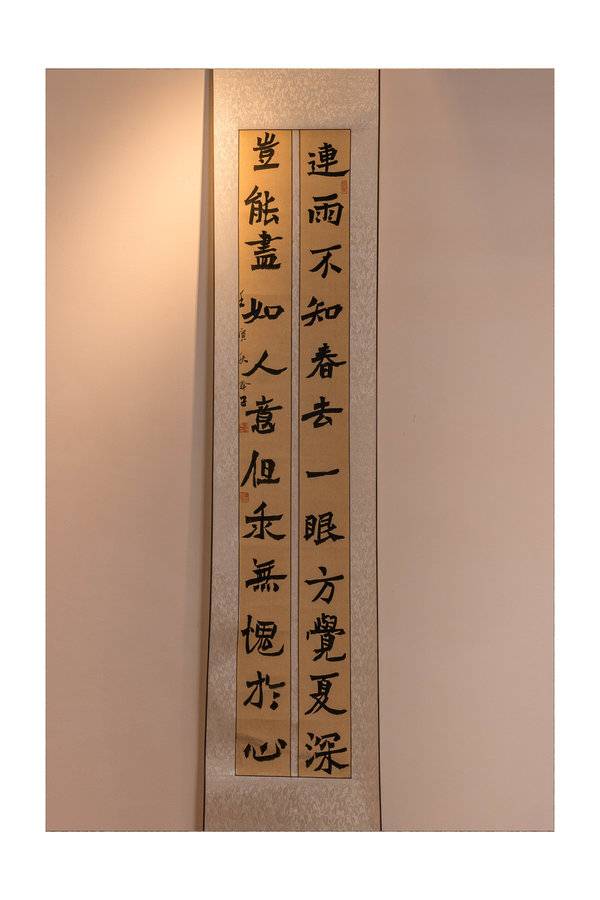 連雨不知春去一眼方覺夏深
豈能盡如人意但求無愧於心